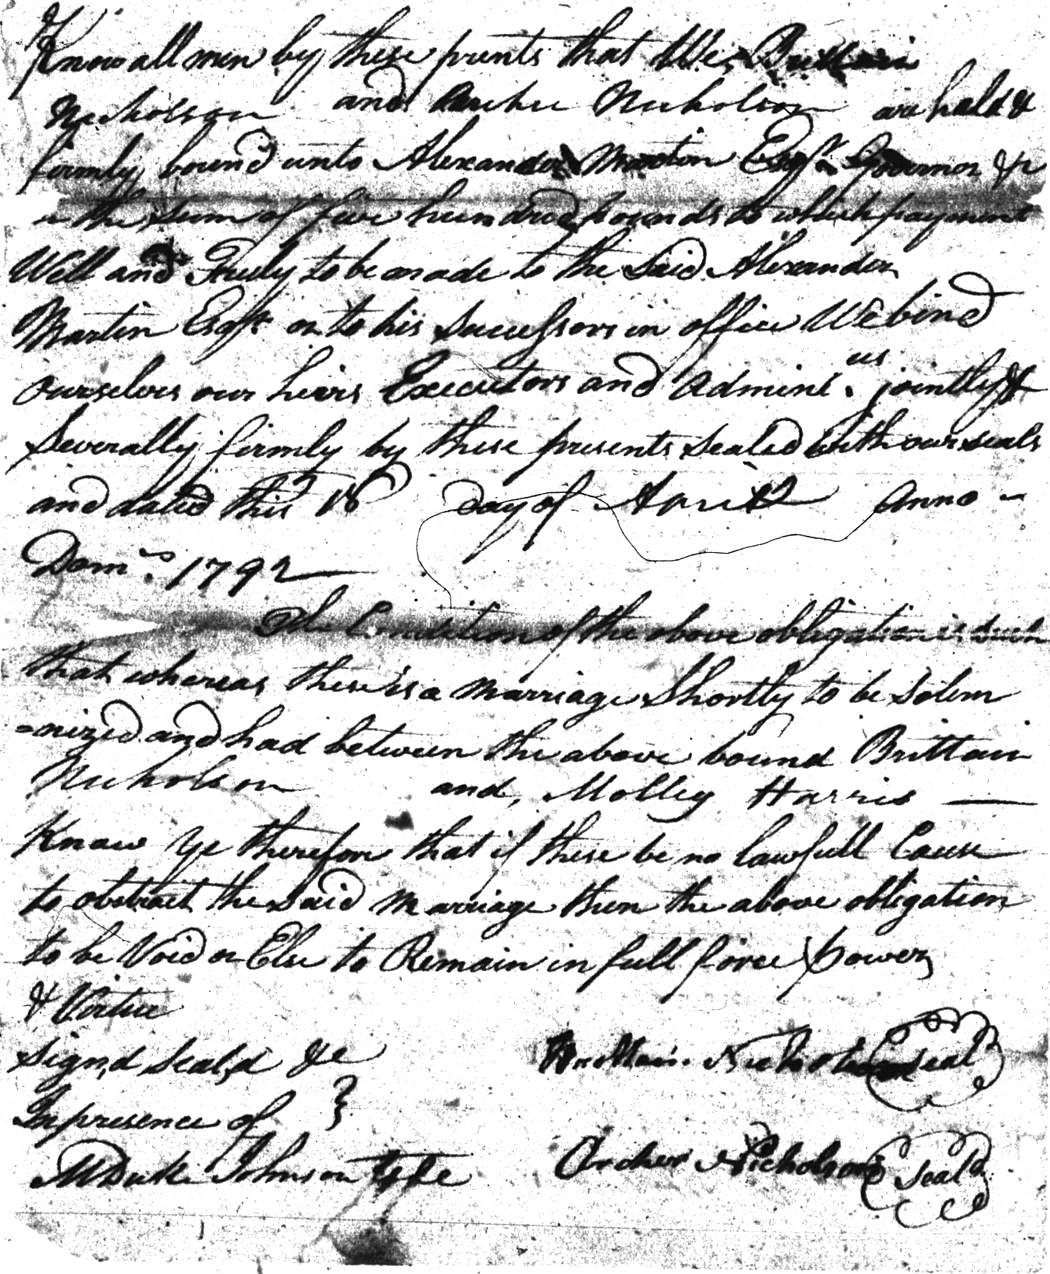 Know all men by these presents that We Brittain
Nicholson and Archer Nicholson are held &
firmly bound unto Alexander Martin Esqr. Governor &c
in the sum of five hundred pounds to which payment
Well and Truly to be made to the Said Alexander
Martin Esqr. or to his Successors in office We bind
ourselves our heirs Executors and Admini. us jointly &
Severally firmly by these presents Sealed with our seals
and dated this 18 Day of April Anno -
Dom. 1792
The Condition of the above obligation is such
that whereas there is a Marriage Shortly to be Solem
=nized and had between the above bound Brittain
Nicholson and, Molley Harris
Know Ye therefore that if there be no lawfull Cause
to obstruct the Said Marriage then the above obligation
to be Void or Else to Remain in full force power
& Virtue
Sign,d Seal,d &c Brittain Nicholson Seal
In presence of
M Duke Johnson Archer Nicholson Seal